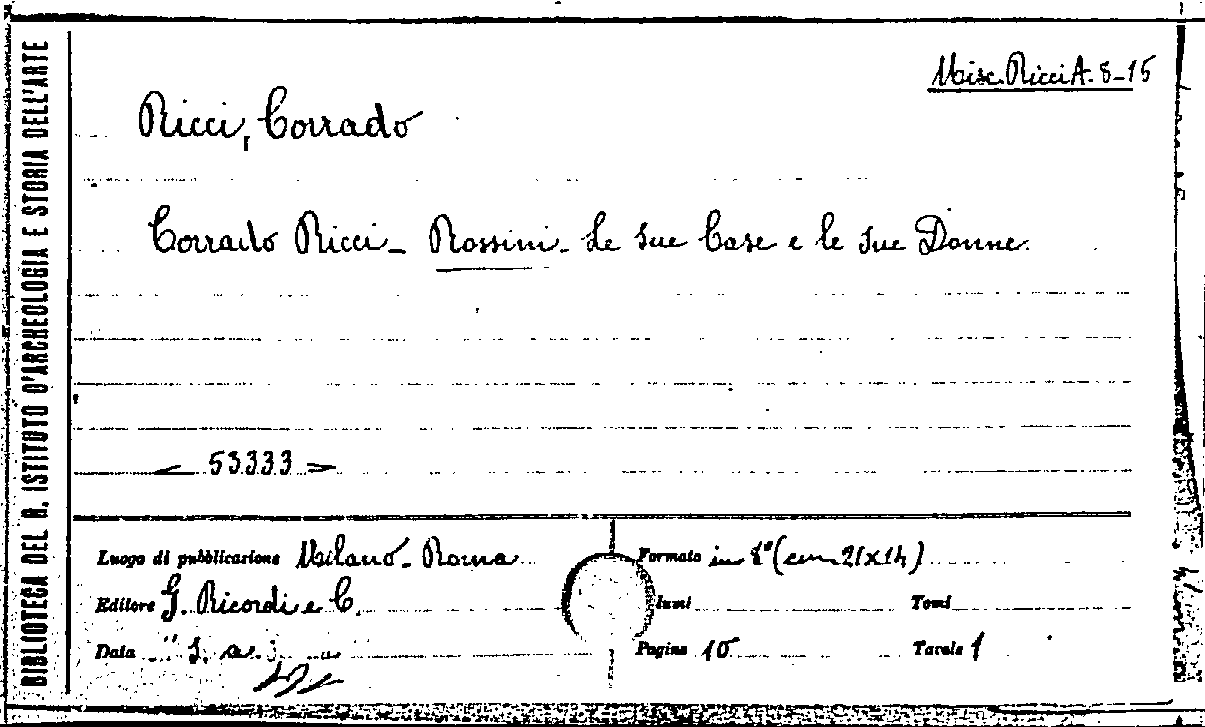 BIBLIOTECA DEL R. ISTITUTO D'ARCHEOLOGIA E STORIA DELL'ARTE
Misc. Ricci A. 8-15
Ricci, Corrado
Corrado Ricci - Rossini - Le sue Case e le sue Donne.
53333
Luogo di pubblicazione Milano - Roma
Editore G. Ricordi e C.
Data s. a.
Formato in 8° (cm 21x14)
lumi
Tomi
Pagine 15
Tavole 1